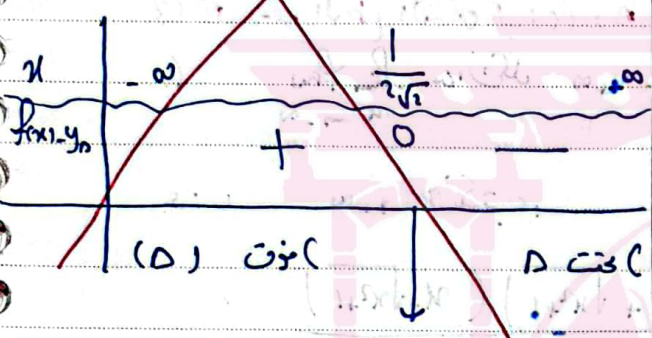 x -∞ 1/(2√2) +∞
f(x)-y_D + 0 -
(D) فوق (C D تحت (C